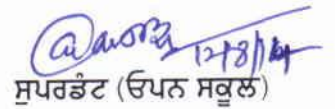 12/8/14
ਸੁਪਰਡੰਟ (ਓਪਨ ਸਕੂਲ)